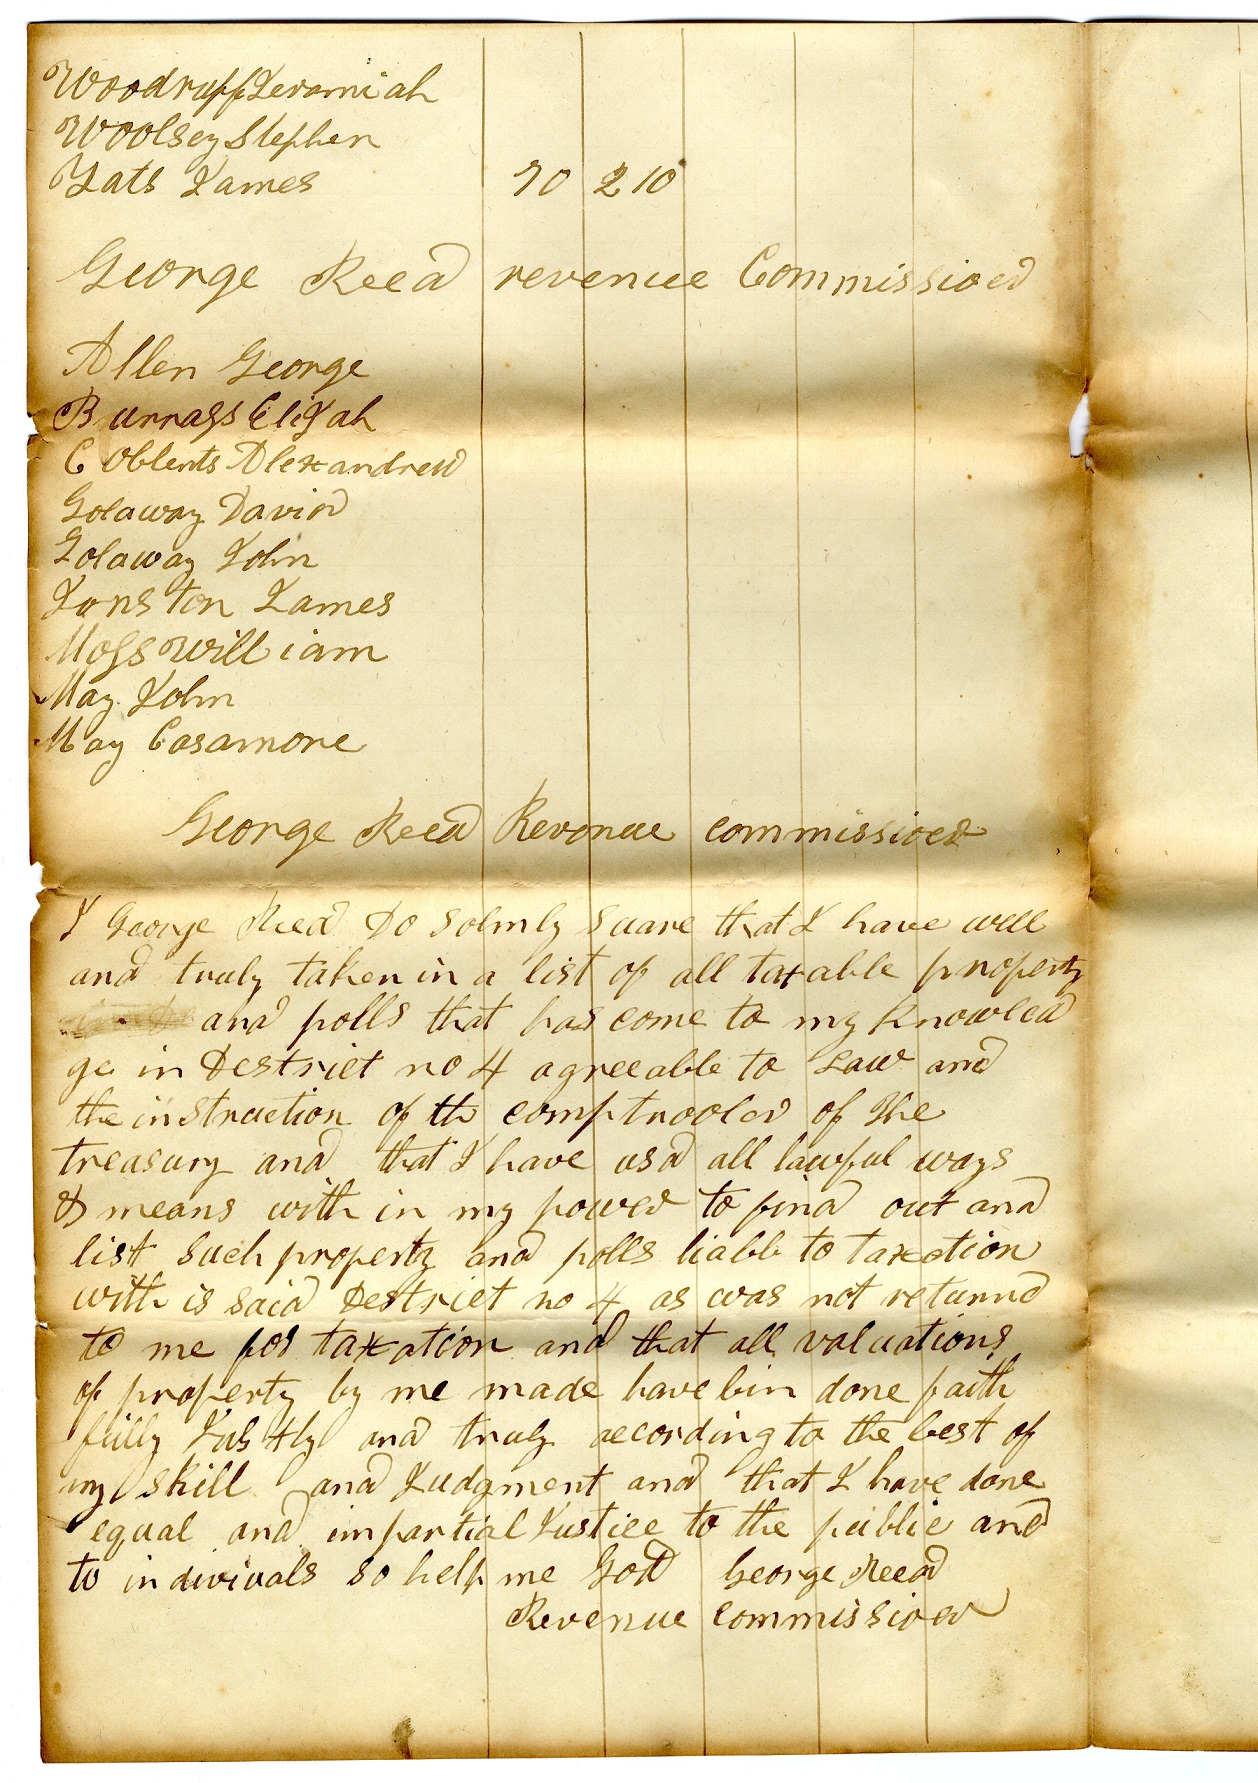 Woodruff Jeramiah
Woolsey Stephen
Yats James 70 210
George Reed revenue Commissioer
Allen George
Burrass Elijah
Coblents Alexandrew
Golaway David
Golaway John
Jonston James
Moss William
May John
May Casamore
George Reed Revonue commissioer
I George Reed Do solmly suare that I have well
and truly taken in a list of all taxable property
and polls that has come to my knowled
ge in Destrict no 4 agreeable to Law and
the instruction of th comptrooler of the
treasury and that I have usd all lawful ways
& means with in my power to find out and
list such property and polls liable to taxation
with is said Destrict no 4 as was not returnd
to me for taxation and that all valuations
of property by me made have bin done faith
fully Justly and truly according to the best of
my skill and Judgment and that I have done
equal and impartial Justice to the publice and
to indiviuals so help me God George Reed
Revenue commissioer